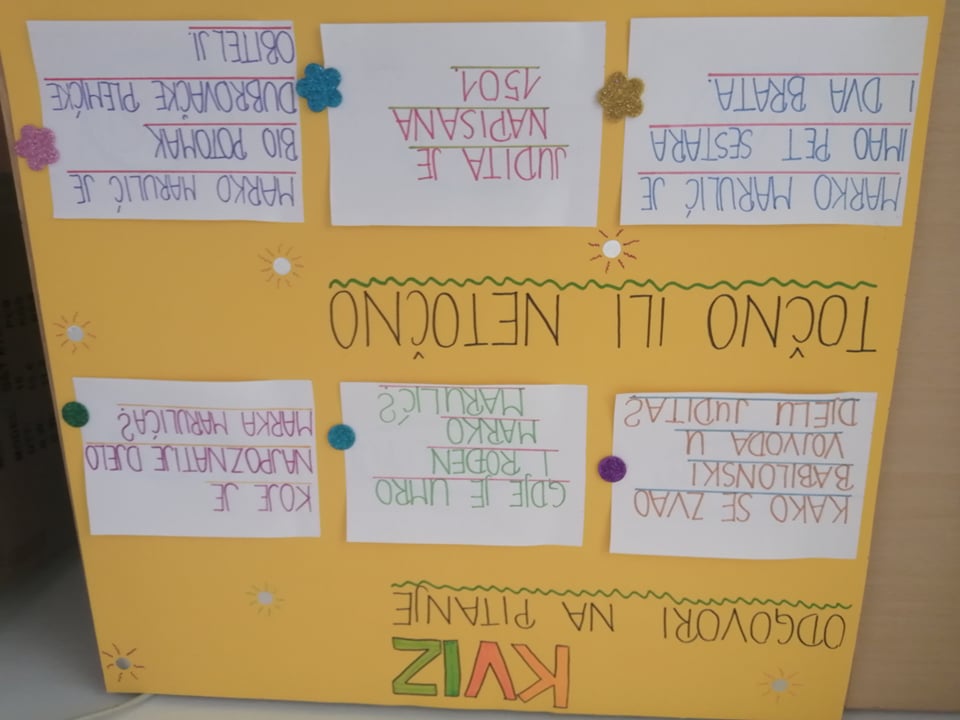 KVIZ
ODGOVORI NA PITANJE
KAKO SE ZVAO
BABILONSKI
VOJVODA U
DJELU JUDITA?
GDJE JE UMRO
I ROĐEN
MARKO
MARULIĆ?
KOJE JE
NAJPOZNATIJE DJELO
MARKA MARULIĆA?
TOČNO ILI NETOČNO
MARKO MARULIĆ JE
IMAO PET SESTARA
I DVA BRATA.
JUDITA JE
NAPISANA
1501.
MARKO MARULIĆ JE
BIO POTOMAK
DUBROVAČKE PLEMIĆKE
OBITELJI.